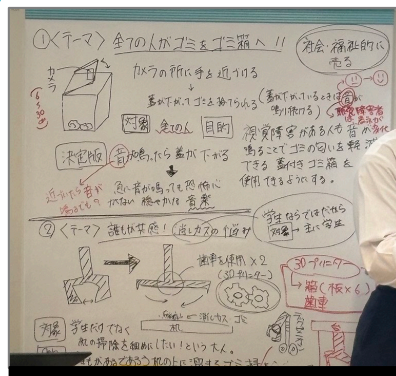 ①〈テーマ〉全ての人がゴミをゴミ箱へ!!
社会・福祉的に
売る
カメラ
カメラの所に手を近づける
↓
蓋が下がってゴミを捨てられる(蓋が下がっているときは音が
鳴り続ける)
対象 全ての人 目的
視覚障害がある人も音が
鳴ることでゴミの匂いを軽減
できる蓋付きゴミ箱を
使用できるようにする。
決定版 音が鳴ったら蓋が下がる
近づいたら音が
鳴るでも?
急に音が鳴っても恐怖心
がない穏やかな音楽
②〈テーマ〉誰もが共感!消しカスの悩み
学生ならではだから
対象→主に学生
歯車を使用×2
(3Dプリンター)
3Dプリンター
→ 脳(板×6)
歯車
消しカス ゴミ
机
対象 学生だけでなく
机の掃除を細めにしたい!という大人。